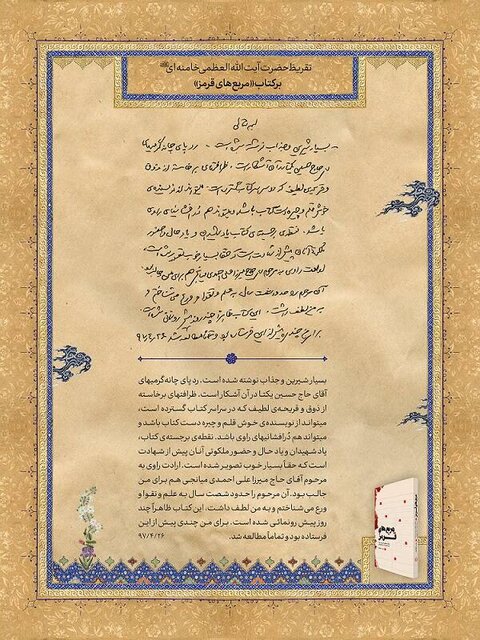 تقریظ حضرت آیت الله العظمی خامنه ای
بر کتاب «مربع های قرمز»
بسمه تعالی
- بسیار شیرین و جذاب نوشته شده است. رد پای چانه گرمیهای
حاج حسین یکتا در آن آشکار است. ظرافتهای برخاسته از ذوق
و قریحه‌ی لطیف که در سراسر کتاب گسترده است، میتواند از نویسنده‌ی
خوش قلم و چیره دست کتاب باشد و میتواند هم دُرافشانیهای راوی
باشد. نقطه‌ی برجسته‌ی کتاب یاد شهیدان و یاد حال و حضور
ملکوتی آنان پیش از شهادت است که حقاً بسیار خوب تصویر شده است.
ارادت راوی به مرحوم حاج میرزا علی احمدی میانجی هم برای من جالب بود.
آن مرحوم را حدود شصت سال به علم و تقوا و ورع می شناختم و
به من لطف داشت. این کتاب ظاهراً چند روز پیش رونمائی شده است.
برای من چندی پیش از این فرستاده بود و تماماً مطالعه شد. ۹۷/۴/۲۶
بسیار شیرین و جذاب نوشته شده است. رد پای چانه‌گرمیهای
آقای حاج حسین یکتا در آن آشکار است. ظرافتهای برخاسته
از ذوق و قریحه‌ی لطیف که در سراسر کتاب گسترده است،
میتواند از نویسنده‌ی خوش قلم و چیره دست کتاب باشد و
میتواند هم دُرافشانیهای راوی باشد. نقطه‌ی برجسته‌ی کتاب،
یاد شهیدان و یاد حال و حضور ملکوتی آنان پیش از شهادت
است که حقاً بسیار خوب تصویر شده است. ارادت راوی به
مرحوم آقای حاج میرزا علی احمدی میانجی هم برای من
جالب بود. آن مرحوم را حدود شصت سال به علم و تقوا و
ورع می شناختم و به من لطف داشت. این کتاب ظاهراً چند
روز پیش رونمائی شده است. برای من چندی پیش از این
فرستاده بود و تماماً مطالعه شد. ۹۷/۴/۲۶